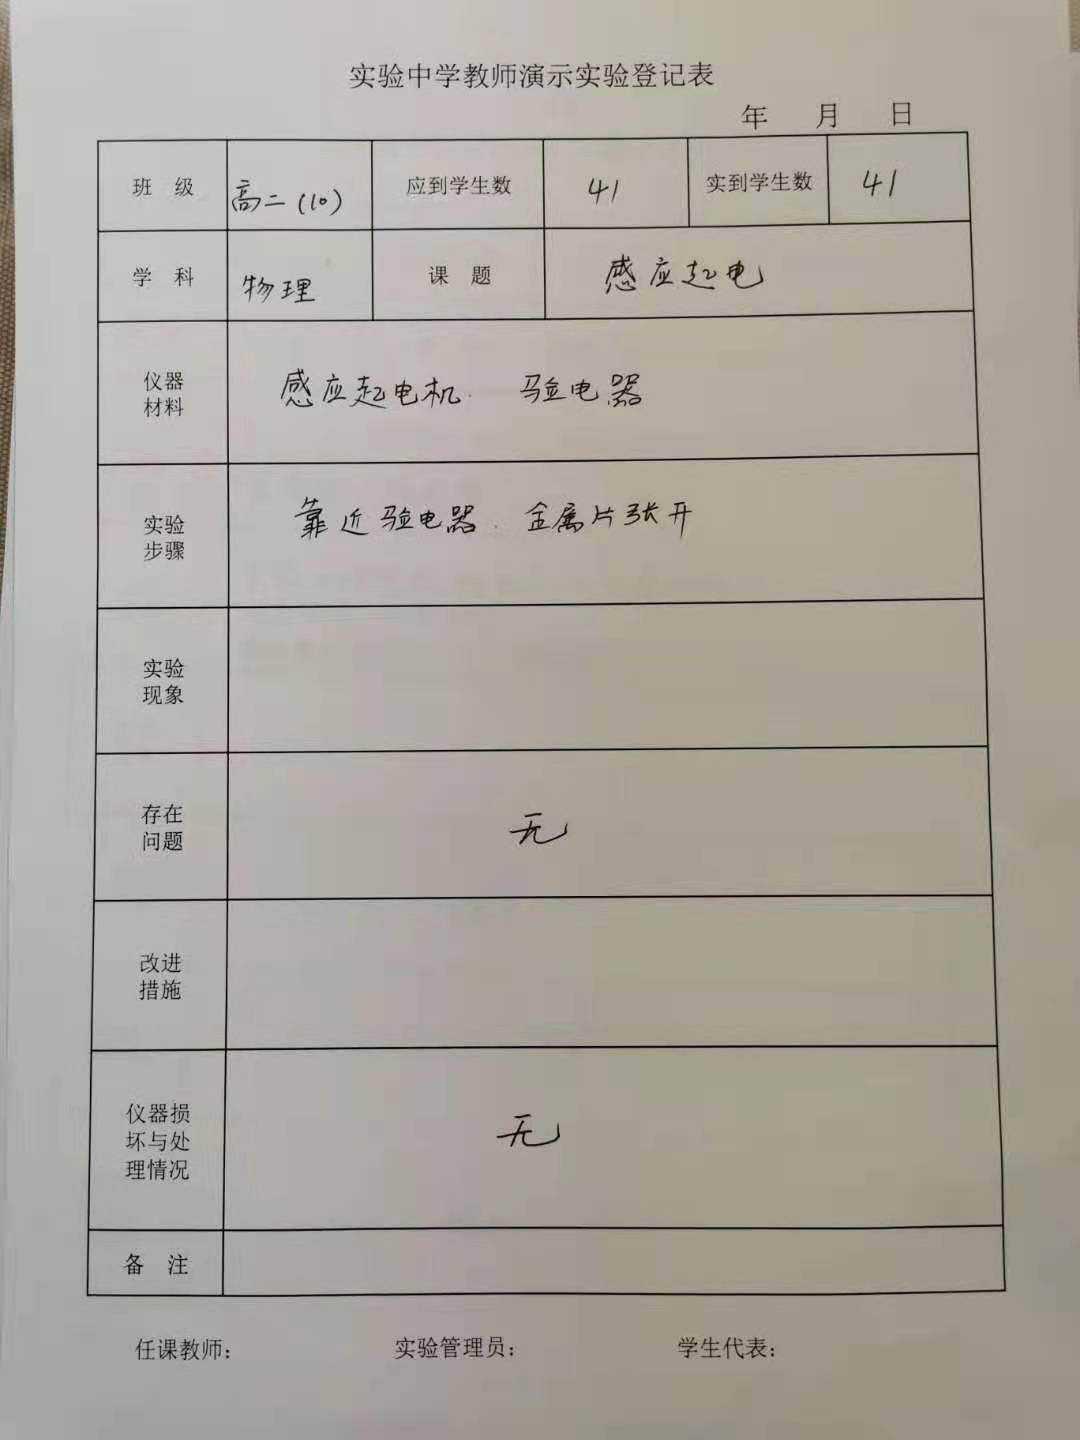 实验中学教师演示实验登记表
年 月 日
班 级 高二(10) 应到学生数 41 实到学生数 41
学 科 物理 课 题 感应起电
仪器
材料
感应起电机. 验电器
实验
步骤
靠近验电器. 金属片张开
实验
现象
存在
问题
无
改进
措施
仪器损
坏与处
理情况
无
备 注
任课教师: 实验管理员: 学生代表: